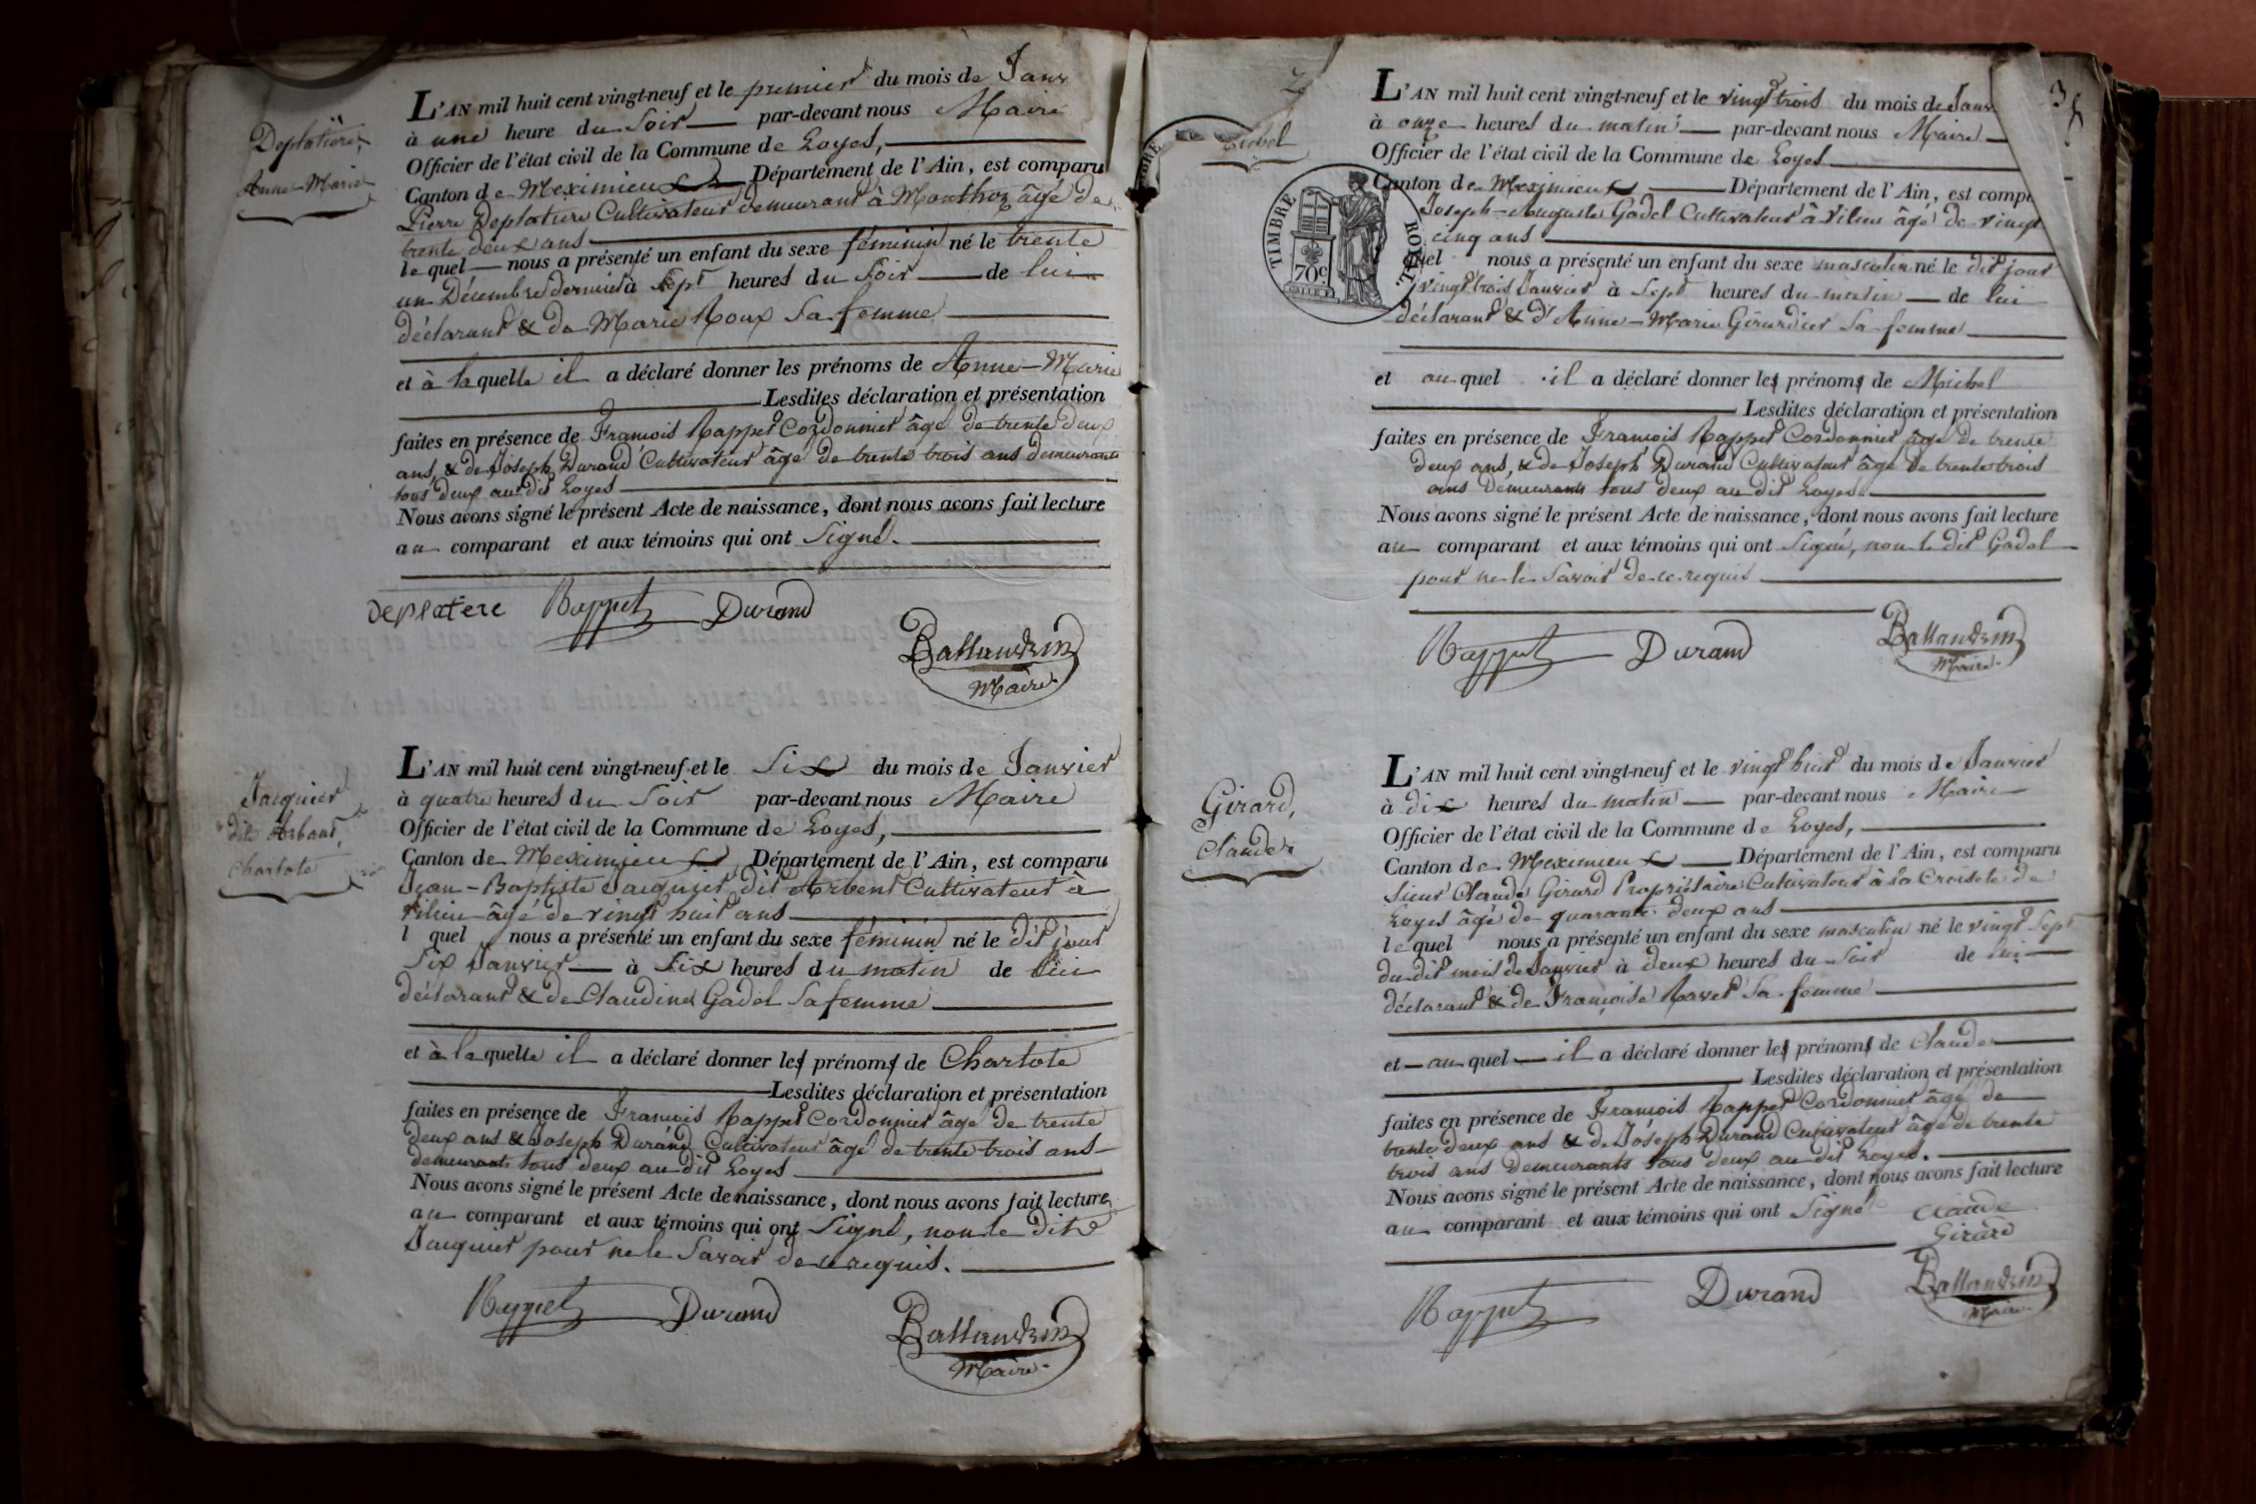 Deplatière,
Anne-Marie
L'AN mil huit cent vingt-neuf et le premier du mois de Janv
à une heure du Soir par-devant nous Maire
Officier de l'état civil de la Commune de Loyes,
Canton de Meximieux Département de l'Ain, est comparu
Pierre Deplatiere Cultivateur demeurant à Monthoz âgé de
trente deux ans
le quel nous a présenté un enfant du sexe féminin né le trente
un Décembre dernier à Sept heures du Soir de lui
déclarant & de Marie Roux Sa femme
et à laquelle il a déclaré donner les prénoms de Anne-Marie
Lesdites déclaration et présentation
faites en présence de François Rappet Cordonnier âgé de trente deux
ans, & de Joseph Durand Cultivateur âgé de trente trois ans demeurants
tous deux audit Loyes
Nous avons signé le présent Acte de naissance, dont nous avons fait lecture
au comparant et aux témoins qui ont Signé.
deplatere Rappet Durand
Ballandrin
Maire
Jacquier
dit Arbant,
Charlote
L'AN mil huit cent vingt-neuf et le Six du mois de Janvier
à quatre heures du Soir par-devant nous Maire
Officier de l'état civil de la Commune de Loyes,
Canton de Meximieux Département de l'Ain, est comparu
Jean-Baptiste Jacquier dit Arbent Cultivateur à
âgé de vingt huit ans
l quel nous a présenté un enfant du sexe féminin né le dit jour
Six Janvier à Six heures du matin de lui
déclarant & de Claudine Gadel Sa femme
et à laquelle il a déclaré donner les prénoms de Charlote
Lesdites déclaration et présentation
faites en présence de François Rappet Cordonnier âgé de trente
deux ans & Joseph Durand Cultivateur âgé de trente trois ans
demeurants tous deux au dit Loyes
Nous avons signé le présent Acte de naissance, dont nous avons fait lecture
au comparant et aux témoins qui ont Signé, non le dit
Jacquier pour ne le Savoir de ce requis.
Rappet Durand
Ballandrin
Maire
2
3
TIMBRE ROYAL
70c
L'AN mil huit cent vingt-neuf et le vingt trois du mois de Janv
à onze heures du matin par-devant nous Maire
Officier de l'état civil de la Commune de Loyes
Canton de Meximieux Département de l'Ain, est comp
Joseph-Auguste Gadel Cultivateur à âgé de vingt
cinq ans
quel nous a présenté un enfant du sexe masculin né le dit jour
vingt trois Janvier à Sept heures du matin de lui
déclarant & d'Anne-Marie Girardier Sa femme
et au quel il a déclaré donner les prénoms de Michel
Lesdites déclaration et présentation
faites en présence de François Rappet Cordonnier âgé de trente
deux ans, & de Joseph Durand Cultivateur âgé de trente trois
ans demeurants tous deux au dit Loyes
Nous avons signé le présent Acte de naissance, dont nous avons fait lecture
au comparant et aux témoins qui ont Signé, non le dit Gadel
pour ne le Savoir de ce requis
Rappet Durand
Ballandrin
Maire
Girard,
Claude
L'AN mil huit cent vingt-neuf et le vingt huit du mois de Janvier
à dix heures du matin par-devant nous Maire
Officier de l'état civil de la Commune de Loyes,
Canton de Meximieux Département de l'Ain, est comparu
Sieur Claude Girard Propriétaire Cultivateur à la Croisete de
Loyes âgé de quarante deux ans
le quel nous a présenté un enfant du sexe masculin né le vingt Sept
du dit mois de Janvier à deux heures du Soir de lui
déclarant & de Françoise Ravet Sa femme
et au quel il a déclaré donner les prénoms de Claude
Lesdites déclaration et présentation
faites en présence de François Rappet Cordonnier âgé de
trente deux ans & de Joseph Durand Cultivateur âgé de trente
trois ans demeurants tous deux au dit Loyes.
Nous avons signé le présent Acte de naissance, dont nous avons fait lecture
au comparant et aux témoins qui ont Signé
Claude
Girard
Rappet Durand
Ballandrin
Maire